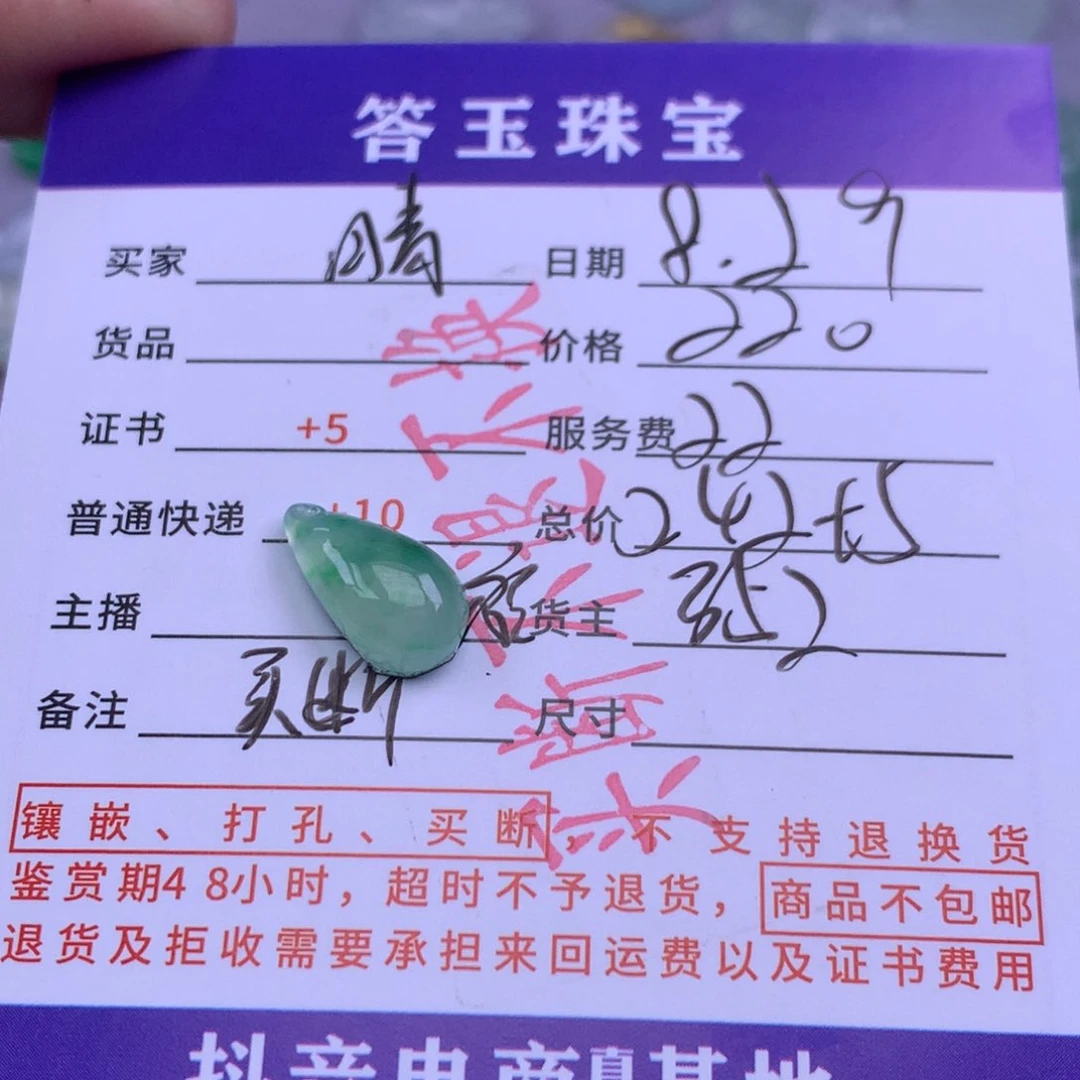 答玉珠宝
买家 晴 日期 8.29
货品 价格 220
证书 +5 服务费 22
普通快递 +10 总价 242+5
主播 货主
备注 买断 尺寸
镶嵌、打孔、买断，不支持退换货
鉴赏期48小时，超时不予退货，商品不包邮
退货及拒收需要承担来回运费以及证书费用
抖音电商直播基地